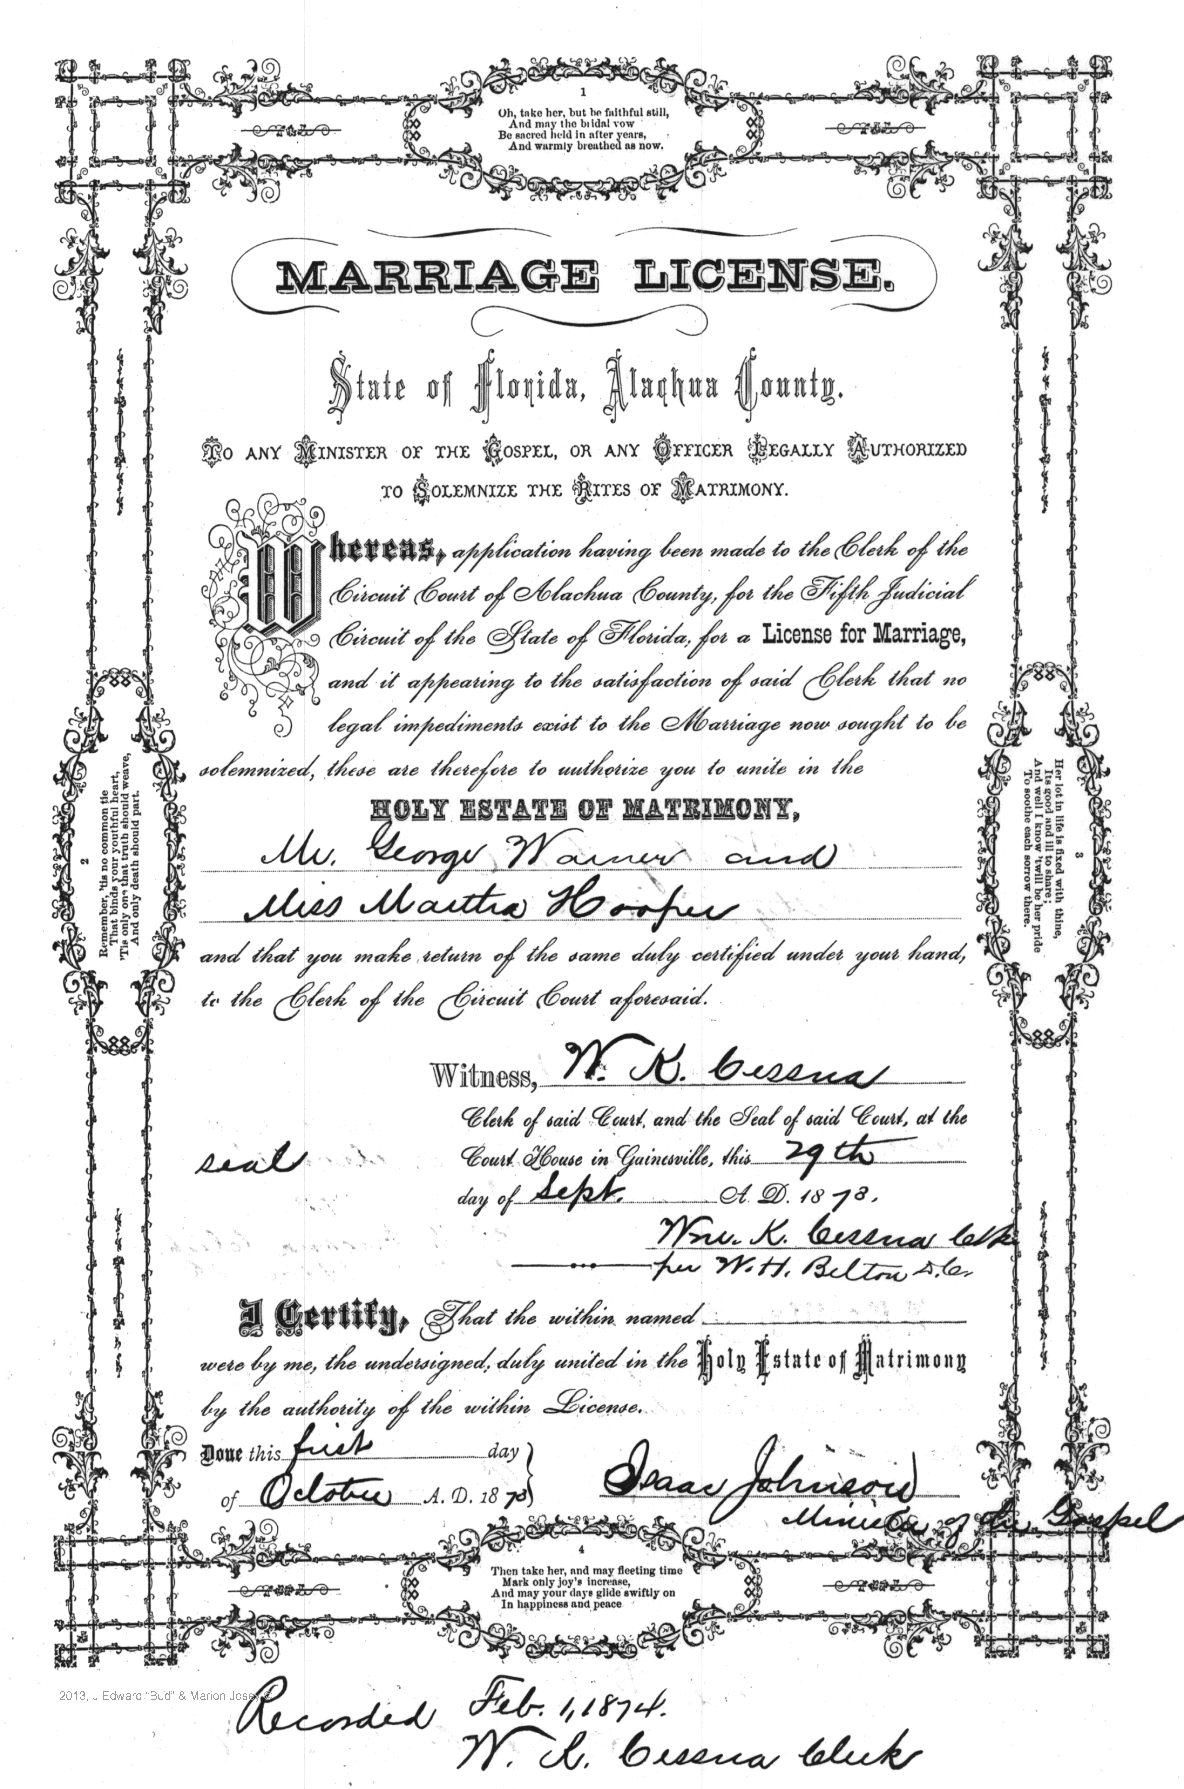 1
Oh, take her, but be faithful still,
And may the bridal vow
Be sacred held in after years,
And warmly breathed as now.
MARRIAGE LICENSE.
State of Florida, Alachua County.
TO ANY MINISTER OF THE GOSPEL, OR ANY OFFICER LEGALLY AUTHORIZED
TO SOLEMNIZE THE RITES OF MATRIMONY.
Whereas, application having been made to the Clerk of the
Circuit Court of Alachua County, for the Fifth Judicial
Circuit of the State of Florida, for a License for Marriage,
and it appearing to the satisfaction of said Clerk that no
legal impediments exist to the Marriage now sought to be
solemnized, these are therefore to authorize you to unite in the
HOLY ESTATE OF MATRIMONY,
Mr. George Warner and
Miss Martha Hooper
and that you make return of the same duly certified under your hand,
to the Clerk of the Circuit Court aforesaid.
2
Remember, 'tis no common tie
That binds your youthful heart,
'Tis only one that truth should weave,
And only death should part.
3
Her lot in life is fixed with thine,
Its good and ill to share;
And well I know 'twill be her pride
To soothe each sorrow there.
Witness, W. K. Cessna
Clerk of said Court, and the Seal of said Court, at the
seal
Court House in Gainesville, this 29th
day of Sept. A. D. 1873.
Wm. K. Cessna Clk
per W. H. Belton D.C.
I Certify, That the within named
were by me, the undersigned, duly united in the Holy Estate of Matrimony
by the authority of the within License.
Done this first day
of October A. D. 1873
Isaac Johnson
Minister of the Gospel
4
Then take her, and may fleeting time
Mark only joy's increase,
And may your days glide swiftly on
In happiness and peace
2013, J Edward "Bud" & Marion Josey
Recorded Feb. 1, 1874.
W. K. Cessna Clerk